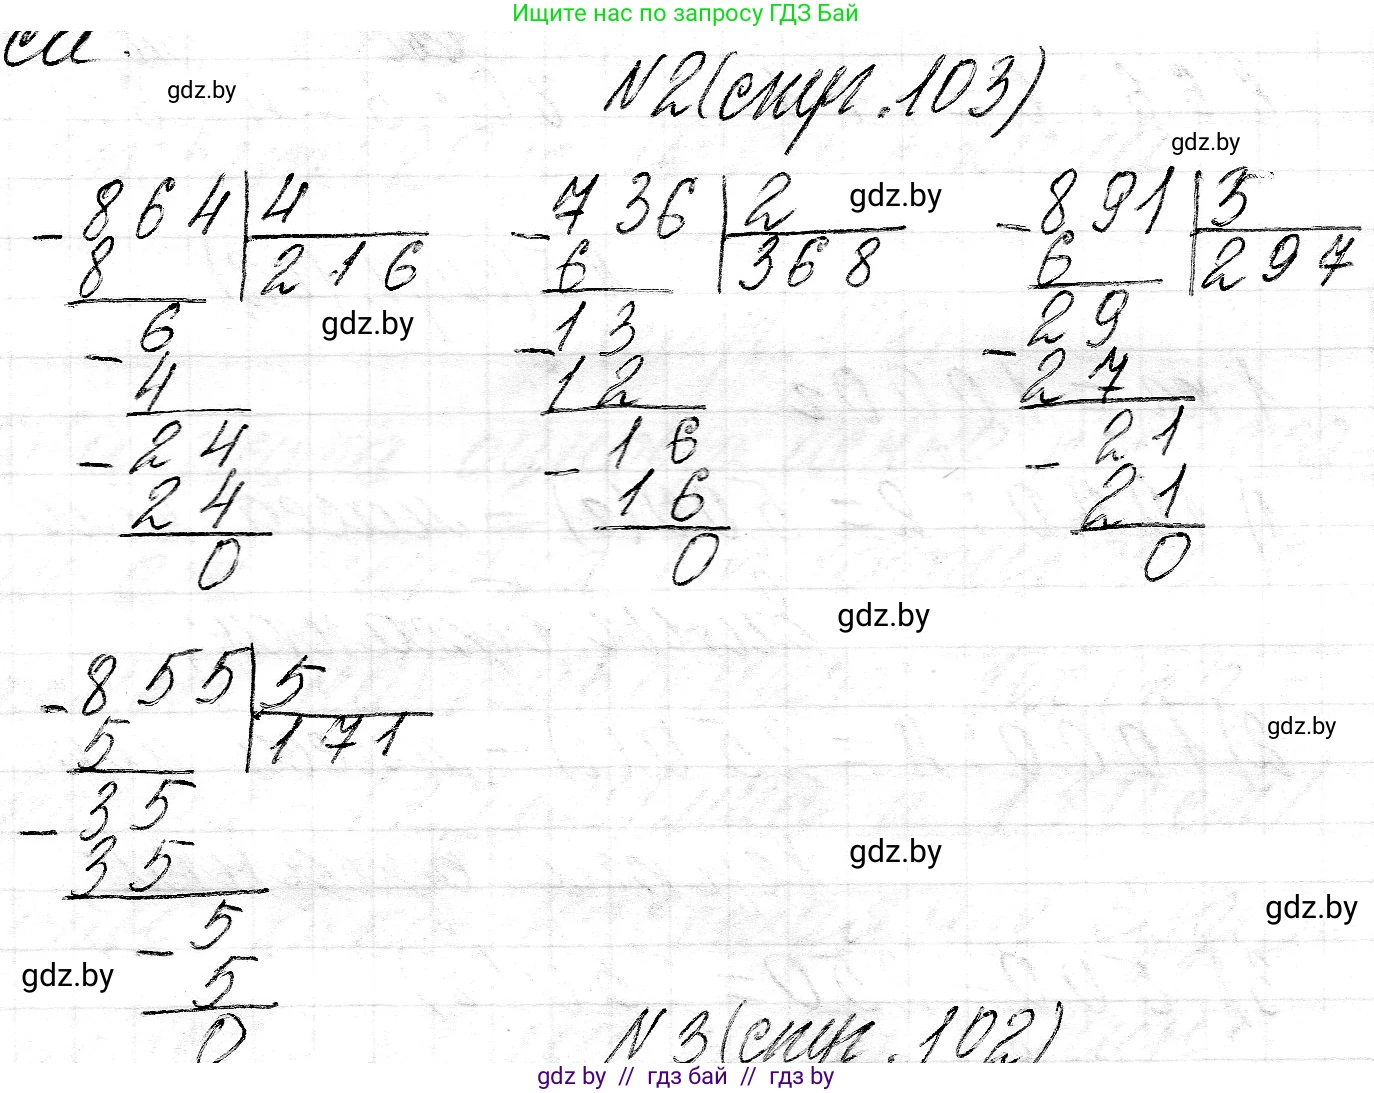 Ищите нас по запросу ГДЗ Бай
gdz.by
N2(стр.103)
gdz.by
- 864 | 4
8 | 216
- 6
4
- 24
24
0
gdz.by
- 736 | 2
6 | 368
- 13
12
- 16
16
0
gdz.by
- 891 | 3
6 | 297
- 29
27
- 21
21
0
gdz.by
- 855 | 5
5 | 171
- 35
35
- 5
5
0
gdz.by
gdz.by
gdz.by
gdz.by
N3(стр.102)
gdz by // гдз бай // гдз by